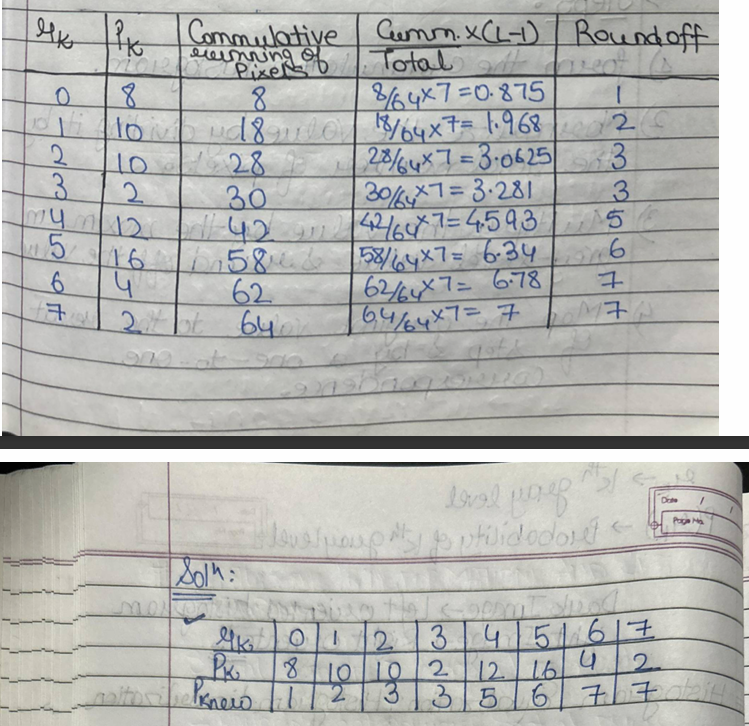 rk Pk Commulative running of Pixels Cumm. x (L-1) / Total Round off
0 8 8 8/64x7=0.875 1
1 10 18 18/64x7=1.968 2
2 10 28 28/64x7=3.0625 3
3 2 30 30/64x7=3.281 3
4 12 42 42/64x7=4.593 5
5 16 58 58/64x7=6.34 6
6 4 62 62/64x7=6.78 7
7 2 64 64/64x7=7 7
Date / /
Page No.
Soln:
rk 0 1 2 3 4 5 6 7
Pk 8 10 10 2 12 16 4 2
Pknew 1 2 3 3 5 6 7 7